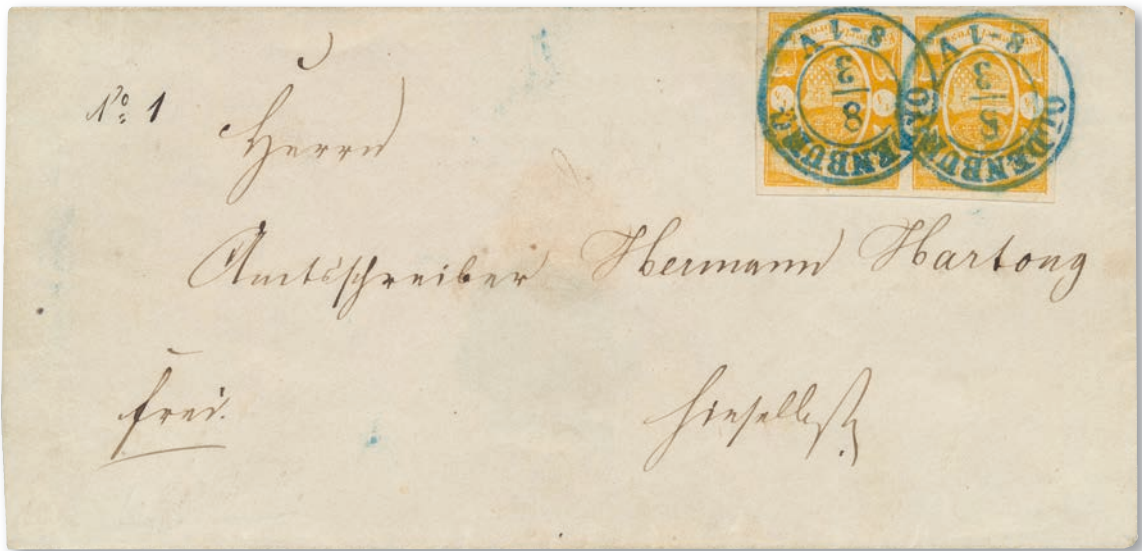 No 1
Herrn
Amtsschreiber Hermann Hartong
frei.
hieselbst
OLDENBURG
8/3
8-1 V
OLDENBURG
5/3
8-1 V